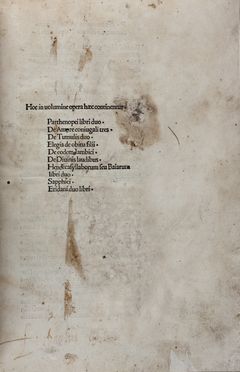 Hoc in uolumine opera hæc continentur
Parthenopei libri duo.
De Amore coniugali tres.
De Tumulis duo.
Elegia de obitu filii.
De eodem Iambici.
De Diuinis laudibus.
Hendecasyllaborum seu Baiarum
libri duo.
Sapphici.
Eridani duo libri.